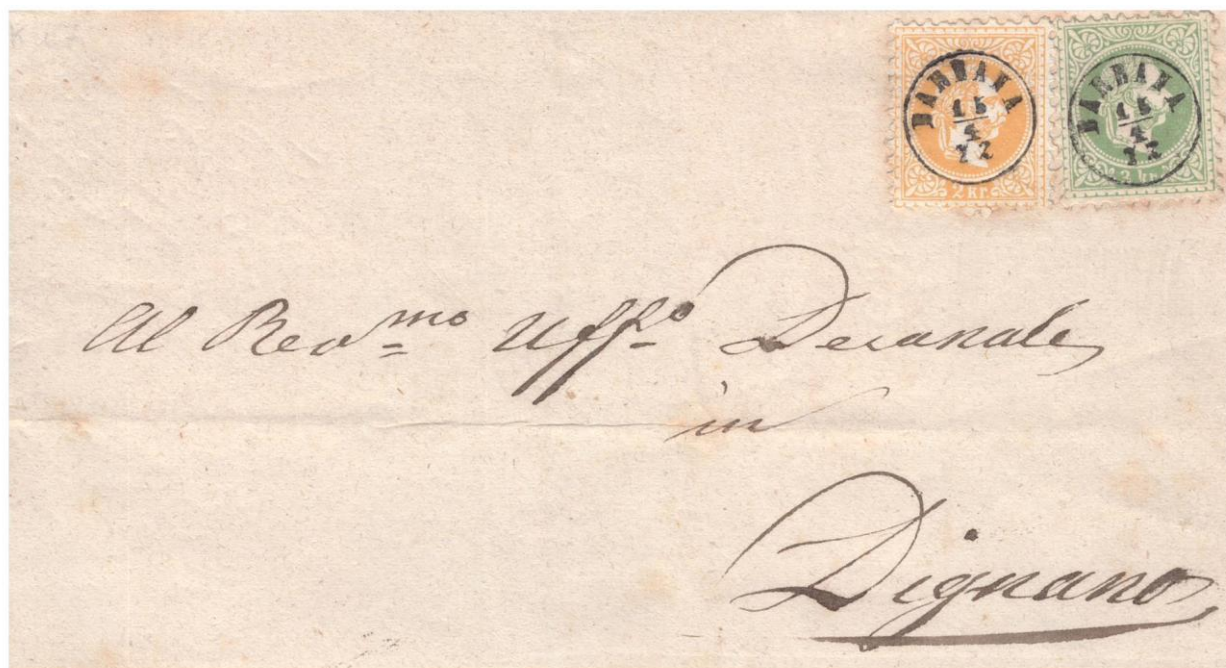 BARBANA
15
4
72
2 kr.
BARBANA
15
4
72
3 kr.
Al Revmo Uffo Decanale
in
Dignano